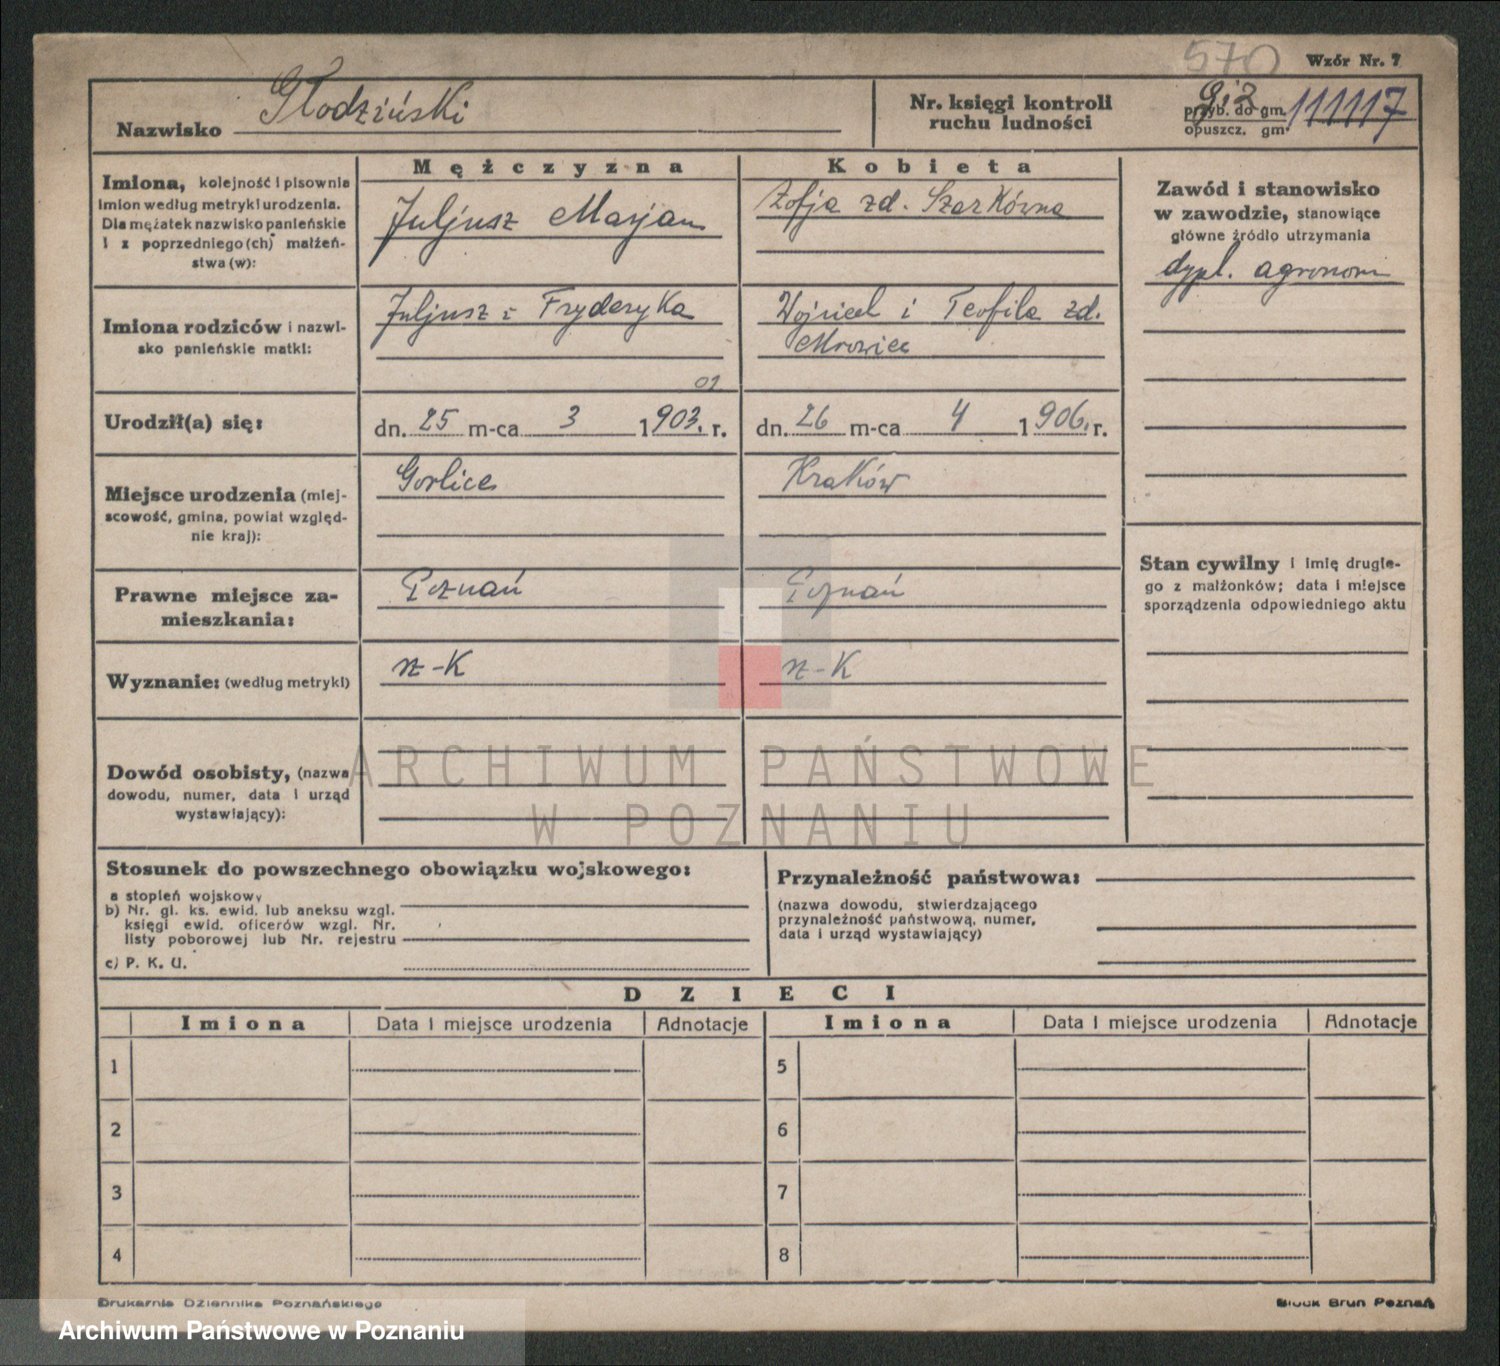 570
Wzór Nr. 7
Nazwisko Głodziński
Nr. księgi kontroli
ruchu ludności
przyb. do gm. 111117
opuszcz. gm.
Mężczyzna
Kobieta
Imiona, kolejność i pisownia
imion według metryki urodzenia.
Dla mężatek nazwisko panieńskie
i z poprzedniego (ch) małżeń-
stwa (w):
Juljusz Marjan
Zofja zd. Szarkówna
Zawód i stanowisko
w zawodzie, stanowiące
główne źródło utrzymania
dypl. agronom
Imiona rodziców i nazwi-
sko panieńskie matki:
Juljusz i Fryderyka
Wojciech i Teofila zd.
Mrowiec
02
Urodził(a) się:
dn. 25 m-ca 3 1903. r.
dn. 26 m-ca 4 1906. r.
Miejsce urodzenia (miej-
scowość, gmina, powiat względ-
nie kraj):
Gorlice
Kraków
Prawne miejsce za-
mieszkania:
Poznań
Poznań
Stan cywilny i imię drugie-
go z małżonków; data i miejsce
sporządzenia odpowiedniego aktu
Wyznanie: (według metryki)
rz-k
rz-k
Dowód osobisty, (nazwa
dowodu, numer, data i urząd
wystawiający):
ARCHIWUM PAŃSTWOWE
W POZNANIU
Stosunek do powszechnego obowiązku wojskowego:
a stopień wojskowy
b) Nr. gł. ks. ewid. lub aneksu wzgl.
księgi ewid. oficerów wzgl. Nr.
listy poborowej lub Nr. rejestru
c) P. K. U.
Przynależność państwowa:
(nazwa dowodu, stwierdzającego
przynależność państwową, numer,
data i urząd wystawiający)
DZIECI
Imiona Data i miejsce urodzenia Adnotacje Imiona Data i miejsce urodzenia Adnotacje
1 5
2 6
3 7
4 8
Drukarnia Dziennika Poznańskiego
Block Brun Poznań
Archiwum Państwowe w Poznaniu